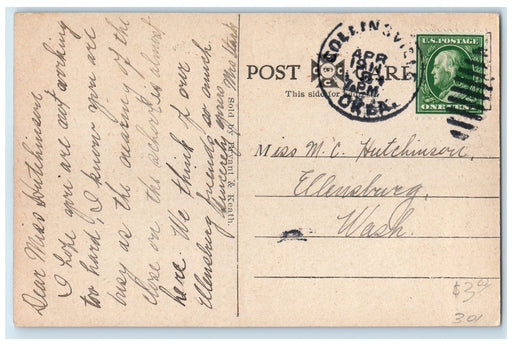 Dear Miss Hutchinson,
I hope you are not working
too hard, I know you are
busy as the nearing of the
close on the school is almost
here. We think of our
Ellensburg friends so much.
Sincerely yours
Mrs
Sold by Bryant & Heath.
POST CARD
This side for
COLLINSVILLE
APR
PM
OKLA.
U.S. POSTAGE
ONE CENT
Miss M. C. Hutchinson,
Ellensburg,
Wash.
$3.00
301